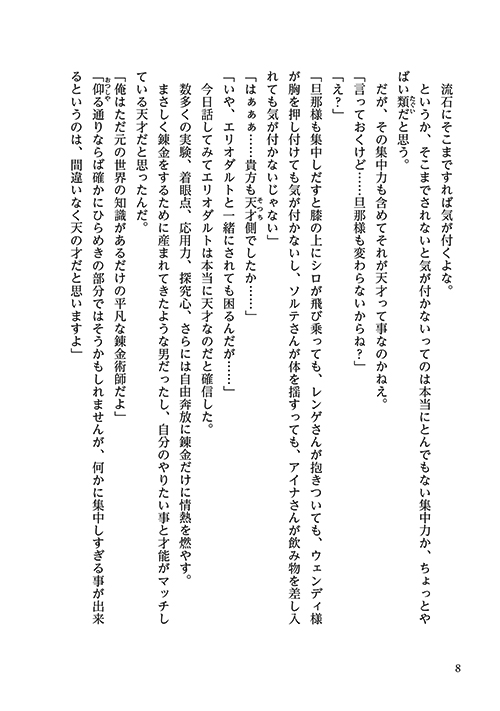 流石にそこまですれば気が付くよな。
というか、そこまでされないと気が付かないってのは本当にとんでもない集中力か、ちょっとや
ばい類だと思う。
たぐい
だが、その集中力も含めてそれが天才って事なのかねえ。
「言っておくけど……旦那様も変わらないからね？」
「え？」
「旦那様も集中しだすと膝の上にシロが飛び乗っても、レンゲさんが抱きついても、ウェンディ様
が胸を押し付けても気が付かないし、ソルテさんが体を揺すっても、アイナさんが飲み物を差し入
れても気が付かないじゃない」
「はぁぁぁ……貴方も天才側でしたか……」
そっち
「いや、エリオダルトと一緒にされても困るんだが……」
今日話してみてエリオダルトは本当に天才なのだと確信した。
数多くの実験、着眼点、応用力、探究心、さらには自由奔放に錬金だけに情熱を燃やす。
まさしく錬金をするために産まれてきたような男だったし、自分のやりたい事と才能がマッチし
ている天才だと思ったんだ。
「俺はただ元の世界の知識があるだけの平凡な錬金術師だよ」
「仰る通りならば確かにひらめきの部分ではそうかもしれませんが、何かに集中しすぎる事が出来
おっしゃ
るというのは、間違いなく天の才だと思いますよ」
8